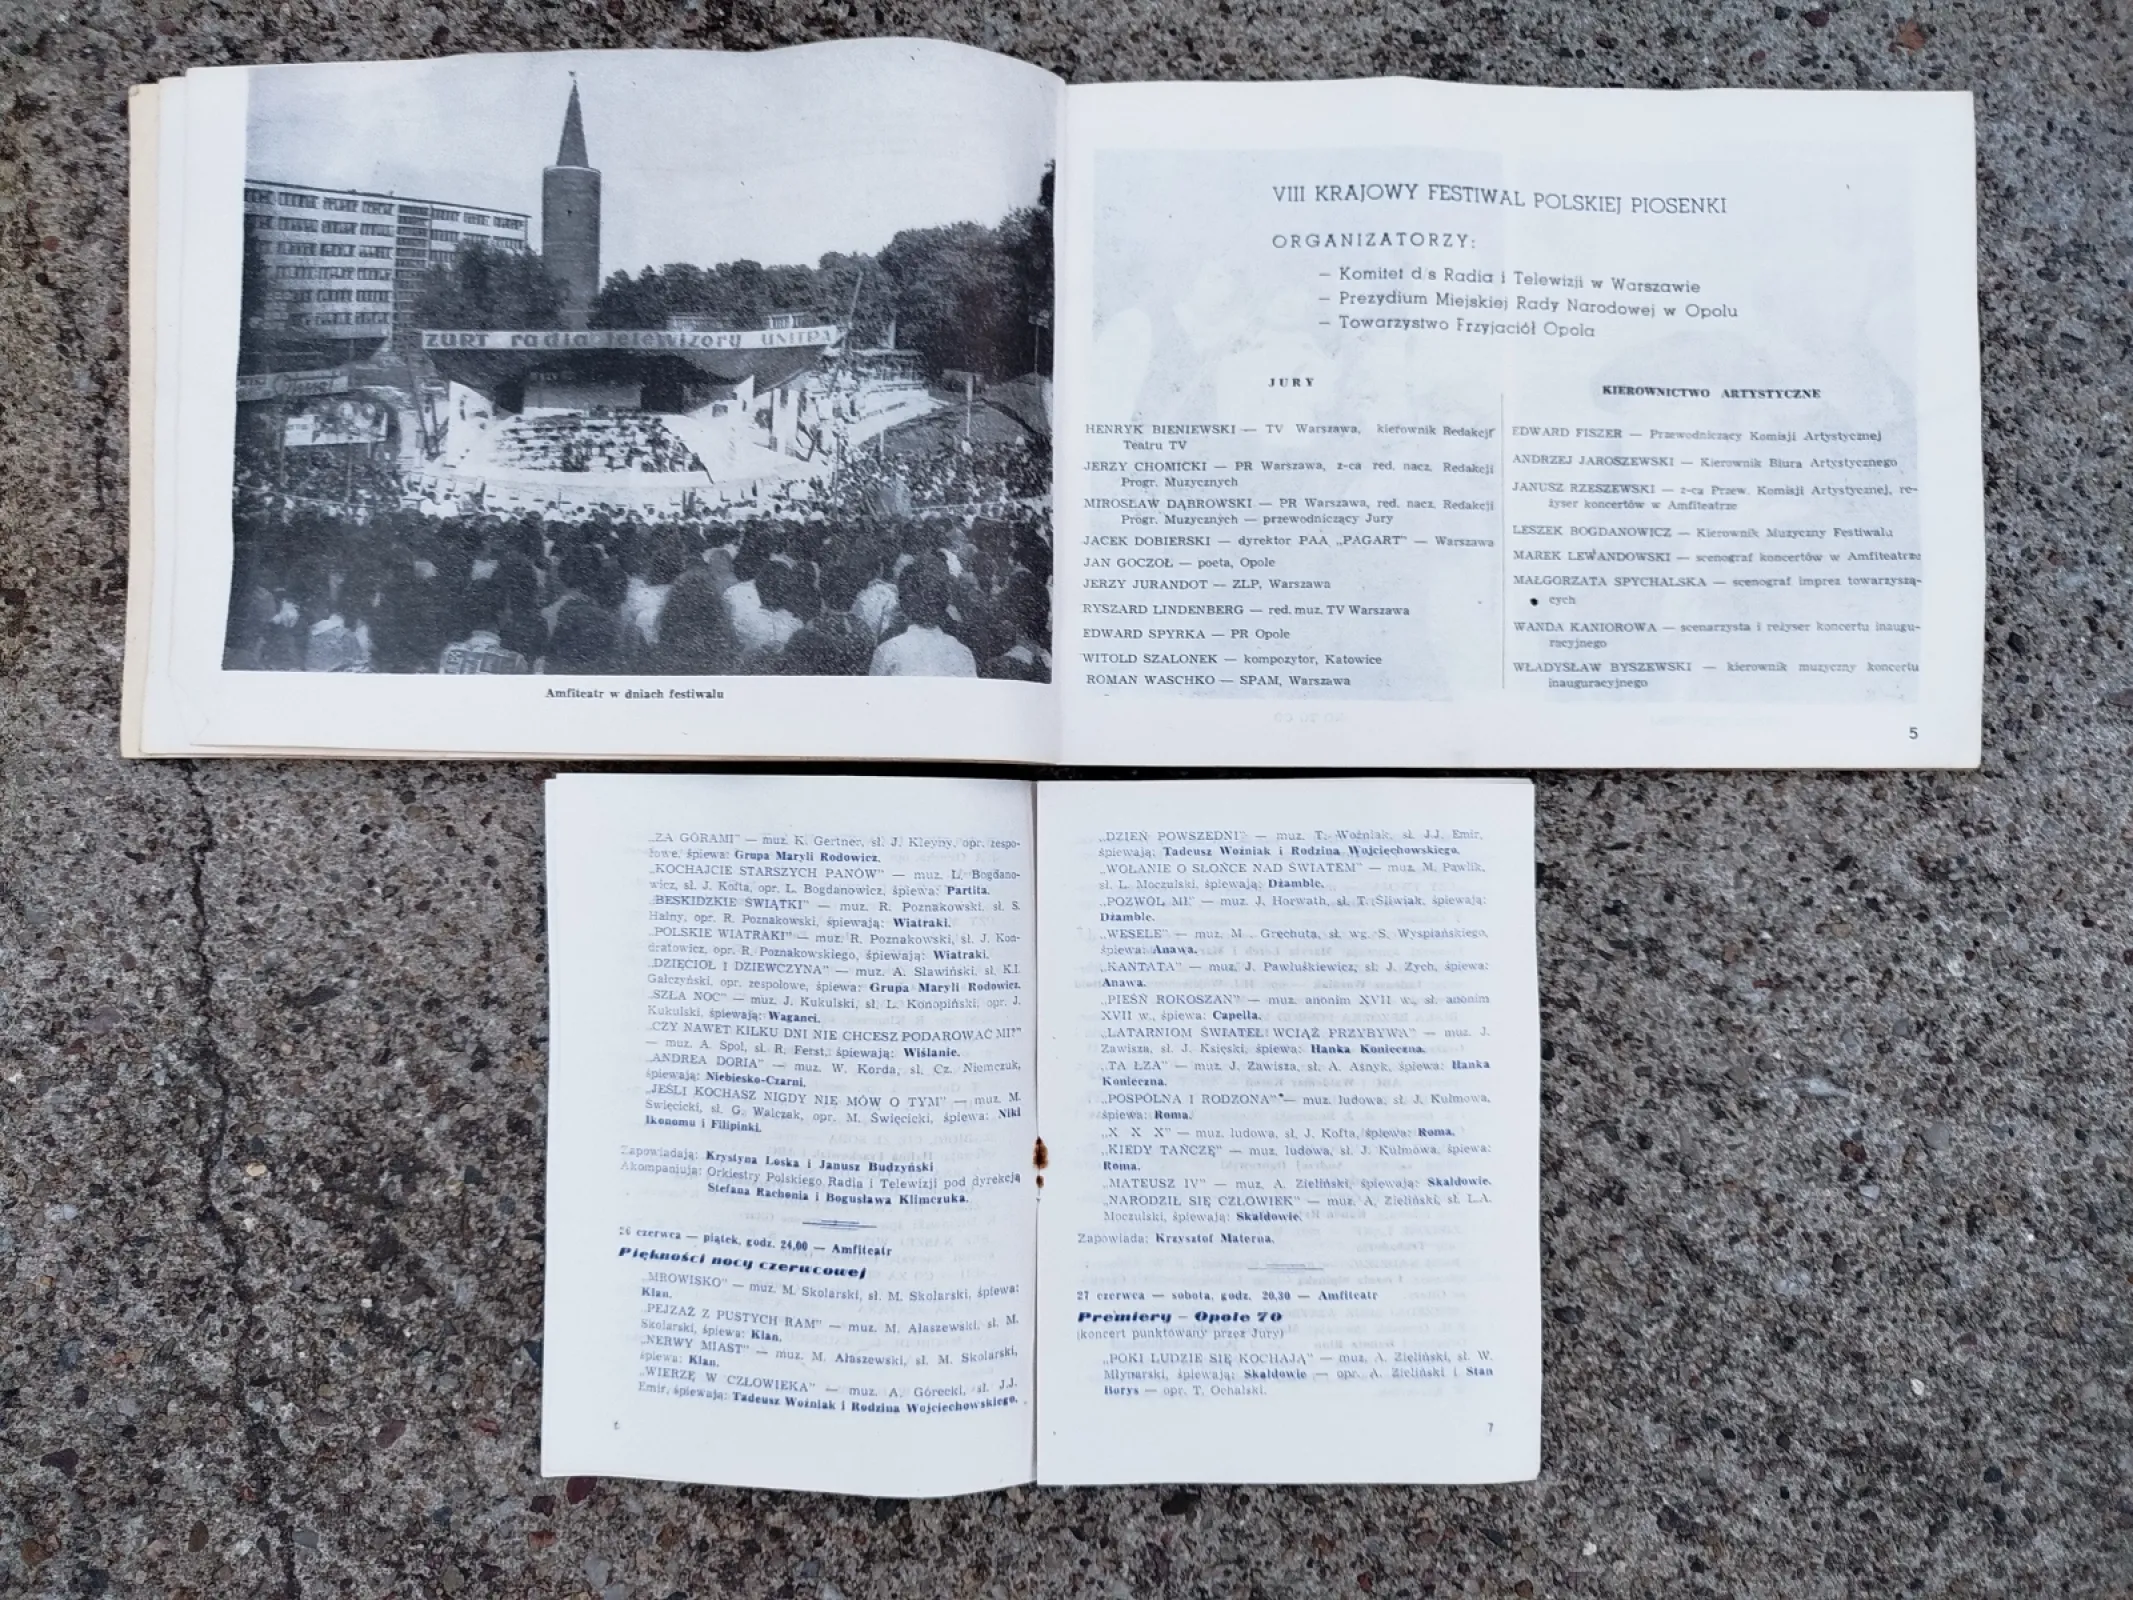 ZURT radia telewizory UNITRA
Amfiteatr w dniach festiwalu
VIII KRAJOWY FESTIWAL POLSKIEJ PIOSENKI
ORGANIZATORZY:
— Komitet d/s Radia i Telewizji w Warszawie
— Prezydium Miejskiej Rady Narodowej w Opolu
— Towarzystwo Przyjaciół Opola
JURY
HENRYK BIENIEWSKI — TV Warszawa, kierownik Redakcji
Teatru TV
JERZY CHOMICKI — PR Warszawa, z-ca red. nacz. Redakcji
Progr. Muzycznych
MIROSŁAW DĄBROWSKI — PR Warszawa, red. nacz. Redakcji
Progr. Muzycznych — przewodniczący Jury
JACEK DOBIERSKI — dyrektor PAA „PAGART” — Warszawa
JAN GOCZOŁ — poeta, Opole
JERZY JURANDOT — ZLP, Warszawa
RYSZARD LINDENBERG — red. muz. TV Warszawa
EDWARD SPYRKA — PR Opole
WITOLD SZALONEK — kompozytor, Katowice
ROMAN WASCHKO — SPAM, Warszawa
KIEROWNICTWO ARTYSTYCZNE
EDWARD FISZER — Przewodniczący Komisji Artystycznej
ANDRZEJ JAROSZEWSKI — Kierownik Biura Artystycznego
JANUSZ RZESZEWSKI — z-ca Przew. Komisji Artystycznej, re-
żyser koncertów w Amfiteatrze
LESZEK BOGDANOWICZ — Kierownik Muzyczny Festiwalu
MAREK LEWANDOWSKI — scenograf koncertów w Amfiteatrze
MAŁGORZATA SPYCHALSKA — scenograf imprez towarzyszą-
cych
WANDA KANIOROWA — scenarzysta i reżyser koncertu inaugu-
racyjnego
WŁADYSŁAW BYSZEWSKI — kierownik muzyczny koncertu
inauguracyjnego
5
„ZA GÓRAMI” — muz. K. Gertner, sł. J. Kleyny, opr. zespo-
łowe, śpiewa: Grupa Maryli Rodowicz.
„KOCHAJCIE STARSZYCH PANÓW” — muz. L. Bogdano-
wicz, sł. J. Kofta, opr. L. Bogdanowicz, śpiewa: Partita.
„BESKIDZKIE ŚWIĄTKI” — muz. R. Poznakowski, sł. S.
Halny, opr. R. Poznakowski, śpiewają: Wiatraki.
„POLSKIE WIATRAKI” — muz. R. Poznakowski, sł. J. Kon-
dratowicz, opr. R. Poznakowskiego, śpiewają: Wiatraki.
„DZIĘCIOŁ I DZIEWCZYNA” — muz. A. Sławiński, sł. K.I.
Gałczyński, opr. zespołowe, śpiewa: Grupa Maryli Rodowicz.
„SZŁA NOC” — muz. J. Kukulski, sł. L. Konopiński, opr. J.
Kukulski, śpiewają: Waganci.
„CZY NAWET KILKU DNI NIE CHCESZ PODAROWAĆ MI?”
— muz. A. Spol, sł. R. Ferst, śpiewają: Wiślanie.
„ANDREA DORIA” — muz. W. Korda, sł. Cz. Niemczuk,
śpiewają: Niebiesko-Czarni.
„JEŚLI KOCHASZ NIGDY NIE MÓW O TYM” — muz. M.
Święcicki, sł. G. Walczak, opr. M. Święcicki, śpiewa: Niki
Ikonomu i Filipinki.
Zapowiadają: Krystyna Loska i Janusz Budzyński
Akompaniują: Orkiestry Polskiego Radia i Telewizji pod dyrekcją
Stefana Rachonia i Bogusława Klimczuka.
26 czerwca — piątek, godz. 24,00 — Amfiteatr
Piękności nocy czerwcowej
„MROWISKO” — muz. M. Skolarski, sł. M. Skolarski, śpiewa:
Klan.
„PEJZAŻ Z PUSTYCH RAM” — muz. M. Ałaszewski, sł. M.
Skolarski, śpiewa: Klan.
„NERWY MIAST” — muz. M. Ałaszewski, sł. M. Skolarski,
śpiewa: Klan.
„WIERZĘ W CZŁOWIEKA” — muz. A. Górecki, sł. J.J.
Emir, śpiewają: Tadeusz Woźniak i Rodzina Wojciechowskiego.
„DZIEŃ POWSZEDNI” — muz. T. Woźniak, sł. J.J. Emir,
śpiewają: Tadeusz Woźniak i Rodzina Wojciechowskiego.
„WOŁANIE O SŁOŃCE NAD ŚWIATEM” — muz. M. Pawlik,
sł. L. Moczulski, śpiewają: Dżamble.
„POZWÓL MI” — muz. J. Horwath, sł. T. Śliwiak, śpiewają:
Dżamble.
„WESELE” — muz. M. Grechuta, sł. wg. S. Wyspiańskiego,
śpiewa: Anawa.
„KANTATA” — muz. J. Pawluśkiewicz, sł. J. Zych, śpiewa:
Anawa.
„PIEŚŃ ROKOSZAN” — muz. anonim XVII w., sł. anonim
XVII w., śpiewa: Capella.
„LATARNIOM ŚWIATEŁ WCIĄŻ PRZYBYWA” — muz. J.
Zawisza, sł. J. Księski, śpiewa: Hanka Konieczna.
„TA ŁZA” — muz. J. Zawisza, sł. A. Asnyk, śpiewa: Hanka
Konieczna.
„POSPÓLNA I RODZONA” — muz. ludowa, sł. J. Kulmowa,
śpiewa: Roma.
„X X X” — muz. ludowa, sł. J. Kofta, śpiewa: Roma.
„KIEDY TAŃCZĘ” — muz. ludowa, sł. J. Kulmowa, śpiewa:
Roma.
„MATEUSZ IV” — muz. A. Zieliński, śpiewają: Skaldowie.
„NARODZIŁ SIĘ CZŁOWIEK” — muz. A. Zieliński, sł. L.A.
Moczulski, śpiewają: Skaldowie.
Zapowiada: Krzysztof Materna.
27 czerwca — sobota, godz. 20,30 — Amfiteatr
Premiery — Opole 70
(koncert punktowany przez Jury)
„POKI LUDZIE SIĘ KOCHAJĄ” — muz. A. Zieliński, sł. W.
Młynarski, śpiewają: Skaldowie — opr. A. Zieliński i Stan
Borys — opr. T. Ochalski.
7